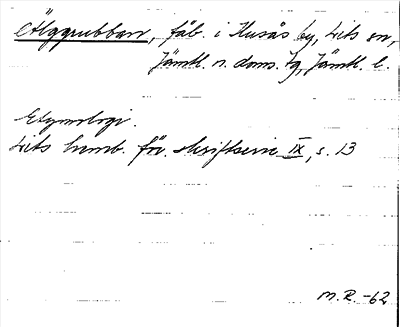 Älggrubban, fäb. i Husås by, Lits sn,
Jämtl. n. doms. tg, Jämtl. l.
Etymologi.
Lits hemb. för. skriftserie IX, s. 13
M.R. -62